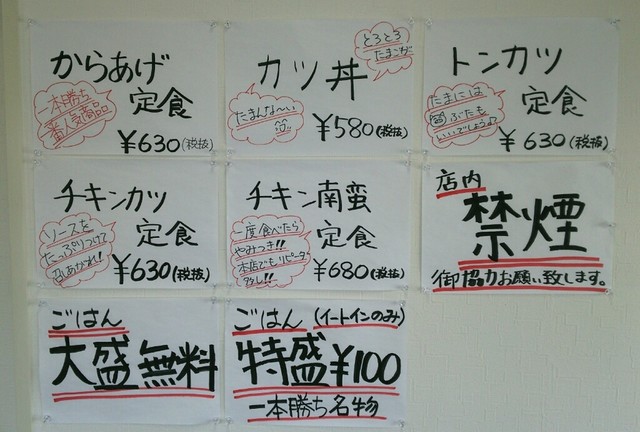 からあげ
定食
一本勝ち
一番人気商品
¥630(税抜)
カツ丼
とろとろ
たまごが
たまんな〜い
¥580(税抜)
トンカツ
定食
たまには
ぶたも
いいでしょう?
¥630(税抜)
チキンカツ
定食
ソースを
たっぷりつけて
召しあがれ!
¥630(税抜)
チキン南蛮
定食
一度食べたら
やみつき!!
本店でもリピーター
致し!!
¥680(税抜)
店内
禁煙
御協力お願い致します。
ごはん
大盛無料
ごはん(イートインのみ)
特盛¥100
一本勝ち名物